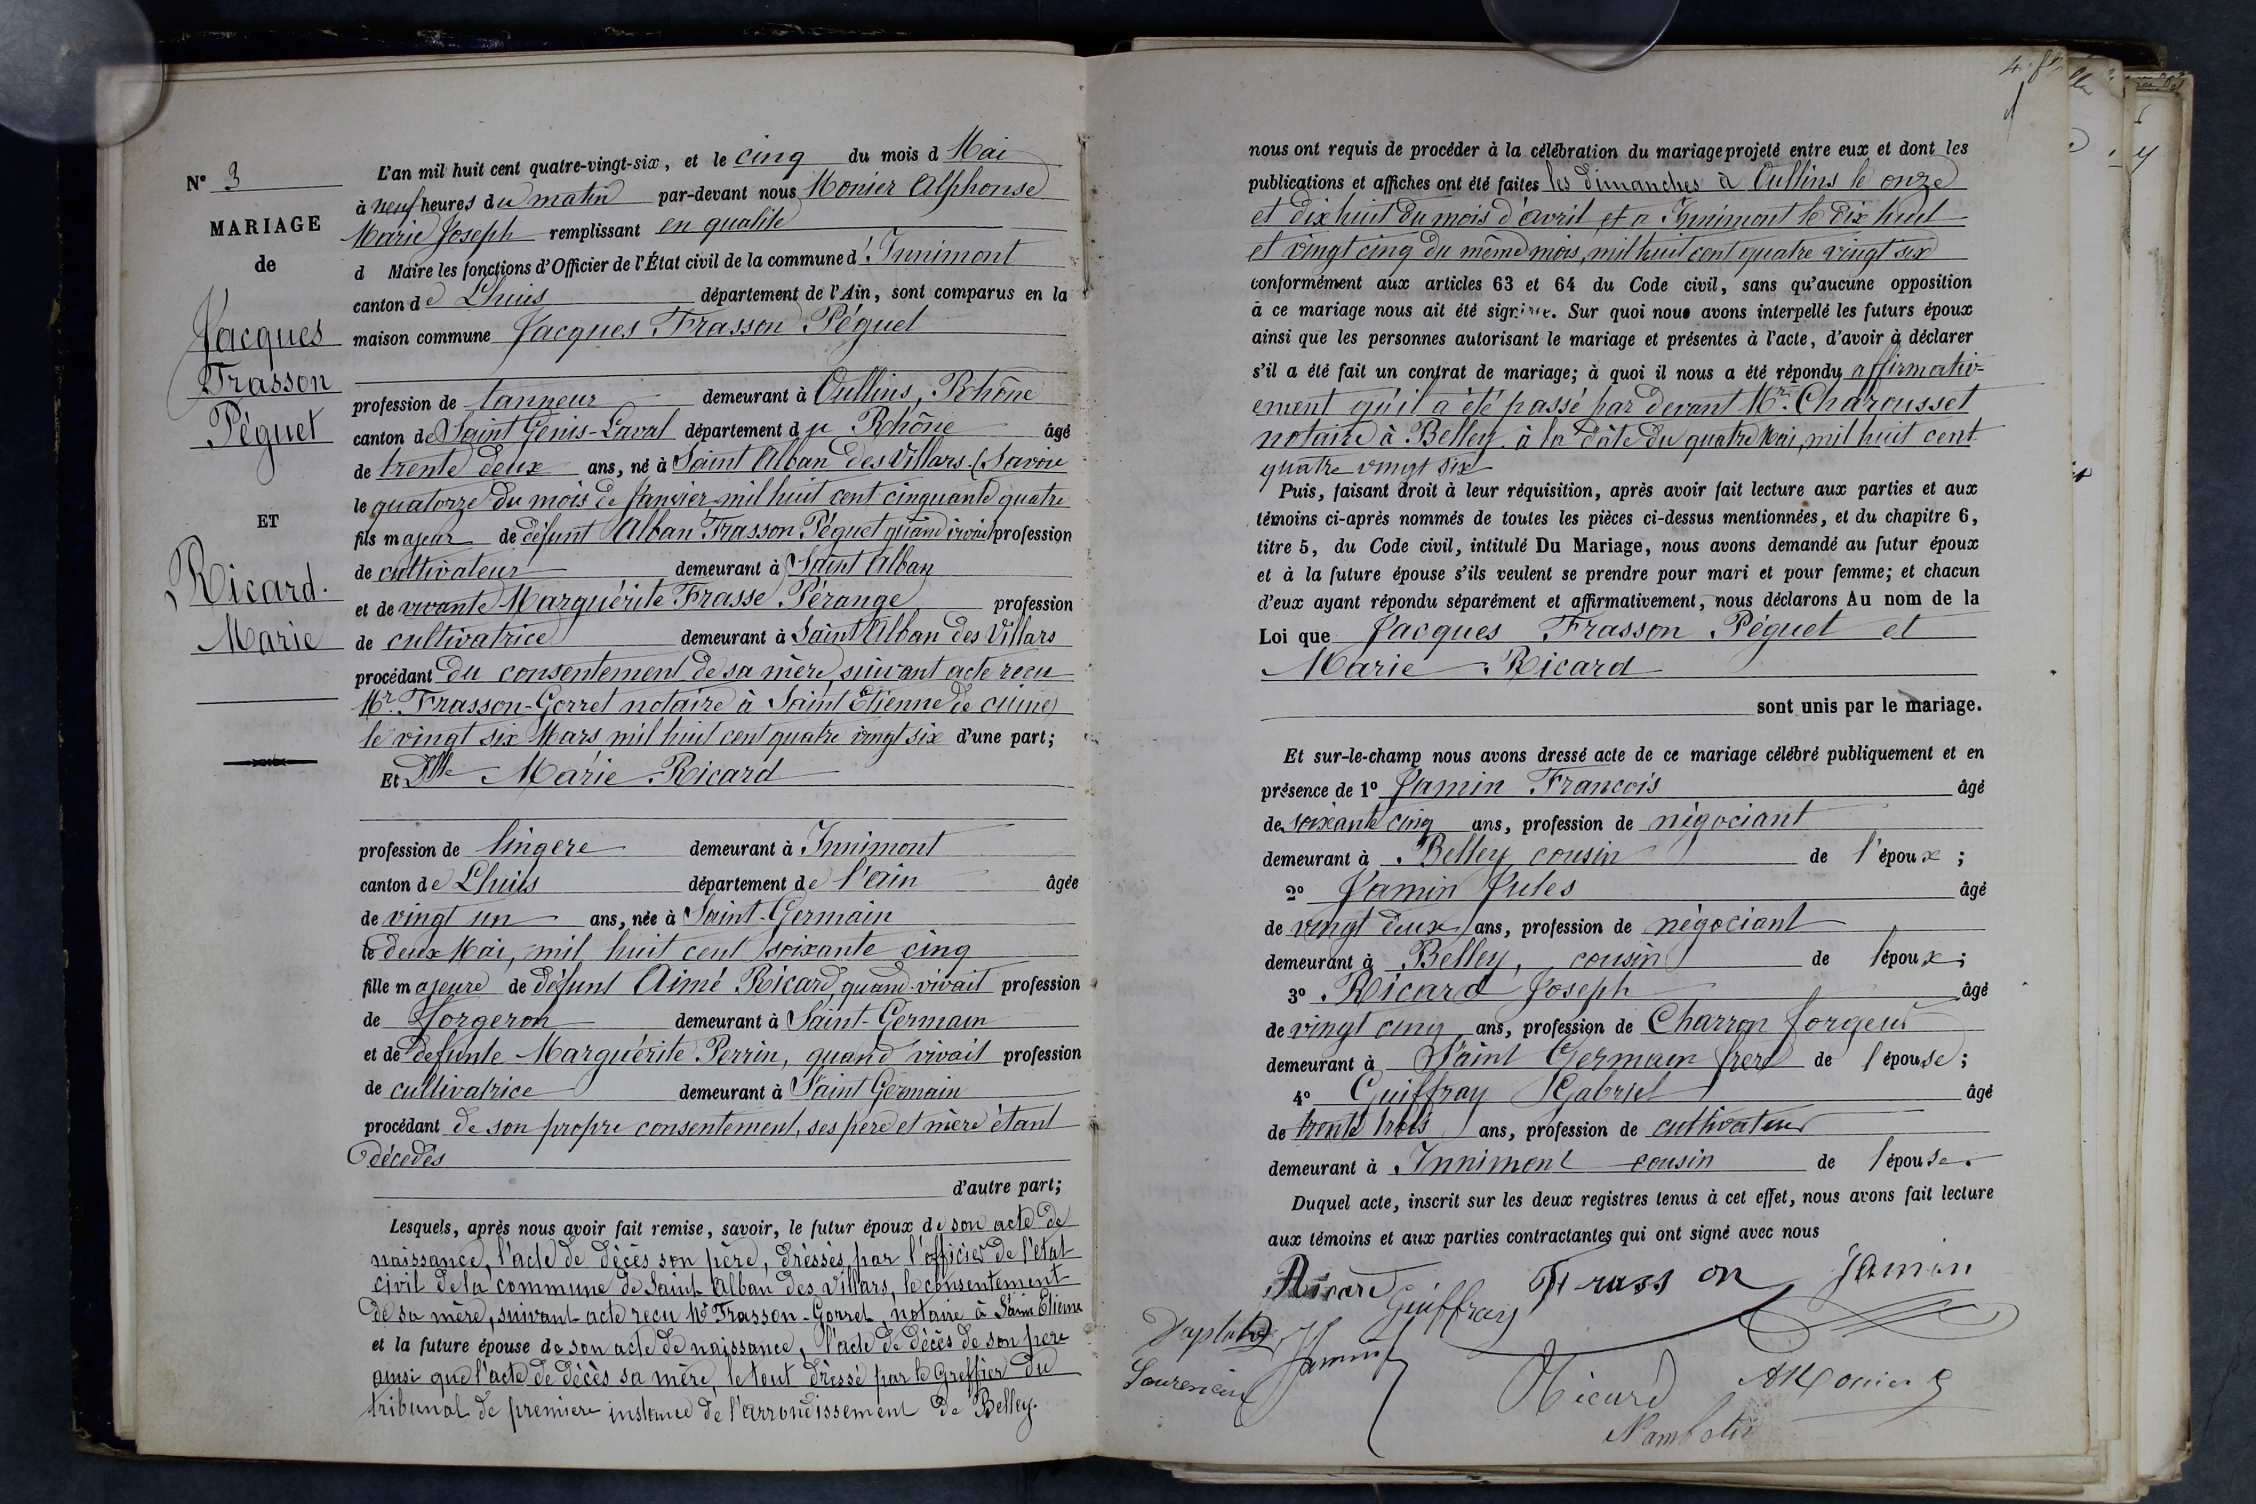 N° 3
MARIAGE
de
Jacques
Frasson
Péguet
ET
Ricard.
Marie
L'an mil huit cent quatre-vingt-six, et le cinq du mois d Mai
à neuf heures du matin par-devant nous Monier Alphonse
Marie Joseph remplissant en qualité
d Maire les fonctions d'Officier de l'État civil de la commune d'Innimont
canton de Lhuis département de l'Ain, sont comparus en la
maison commune Jacques Frasson Péguet
profession de tanneur demeurant à Oullins, Rhône
canton de Saint Genis-Laval département du Rhône âgé
de trente deux ans, né à Saint Alban des Villars (Savoie
le quatorze du mois de Janvier mil huit cent cinquante quatre
fils majeur de défunt Alban Frasson Péguet quand vivait profession
de cultivateur demeurant à Saint Alban
et de vivante Marguérite Frasse Pérange profession
de cultivatrice demeurant à Saint Alban des Villars
procédant du consentement de sa mère, suivant acte reçu
Mr Frasson-Gorret notaire à Saint Etienne de cuines
le vingt six Mars mil huit cent quatre vingt six d'une part;
Et Dlle Marie Ricard
profession de lingere demeurant à Innimont
canton de Lhuis département de l'ain âgée
de vingt un ans, née à Saint-Germain
le deux Mai, mil huit cent soixante cinq
fille majeure de défunt Aimé Ricard, quand vivait profession
de forgeron demeurant à Saint-Germain
et de defunte Marguérite Perrin, quand vivait profession
de cultivatrice demeurant à Saint Germain
procédant de son propre consentement, ses père et mère étant
décedés
d'autre part;
Lesquels, après nous avoir fait remise, savoir, le futur époux de son acte de
naissance, l'acte de décès son père, dréssés, par l'officier de l'état
civil de la commune de Saint Alban des Villars, le consentement
de sa mère, suivant acte reçu Mr Frasson-Gorret, notaire à Saint Etienne
et la future épouse de son acte de naissance, l'acte de décès de son pere
ainsi que l'acte de décès sa mère, le tout dressé par le Greffier du
tribunal de premiere instance de l'arrondissement de Belley.
nous ont requis de procéder à la célébration du mariage projeté entre eux et dont les
publications et affiches ont été faites les dimanches à Oullins le onze
et dix huit du mois d'avril et a Innimont le dix huit
et vingt cinq du même mois, mil huit cent quatre vingt six
conformément aux articles 63 et 64 du Code civil, sans qu'aucune opposition
à ce mariage nous ait été signifiée. Sur quoi nous avons interpellé les futurs époux
ainsi que les personnes autorisant le mariage et présentes à l'acte, d'avoir à déclarer
s'il a été fait un contrat de mariage; à quoi il nous a été répondu affirmativ-
ement qu'il a été passé par devant Mr Charousset
notaire à Belley à la date du quatre Mai, mil huit cent
quatre vingt six
Puis, faisant droit à leur réquisition, après avoir fait lecture aux parties et aux
témoins ci-après nommés de toutes les pièces ci-dessus mentionnées, et du chapitre 6,
titre 5, du Code civil, intitulé Du Mariage, nous avons demandé au futur époux
et à la future épouse s'ils veulent se prendre pour mari et pour femme; et chacun
d'eux ayant répondu séparément et affirmativement, nous déclarons Au nom de la
Loi que Jacques Frasson Péguet et
Marie Ricard
sont unis par le mariage.
Et sur-le-champ nous avons dressé acte de ce mariage célébré publiquement et en
présence de 1° Jamin François âgé
de soixante cinq ans, profession de négociant
demeurant à Belley cousin de l'époux;
2° Jamin Jules âgé
de vingt deux ans, profession de négociant
demeurant à Belley, cousin de l'époux;
3° Ricard Joseph âgé
de vingt cinq ans, profession de Charron forgeur
demeurant à Saint Germain frere de l'épouse;
4° Guiffray Gabriel âgé
de trente trois ans, profession de cultivateur
demeurant à Innimont cousin de l'épouse.
Duquel acte, inscrit sur les deux registres tenus à cet effet, nous avons fait lecture
aux témoins et aux parties contractantes qui ont signé avec nous
Ricard Guiffray Frasson Jamin
Jamin
Ricard AMonier